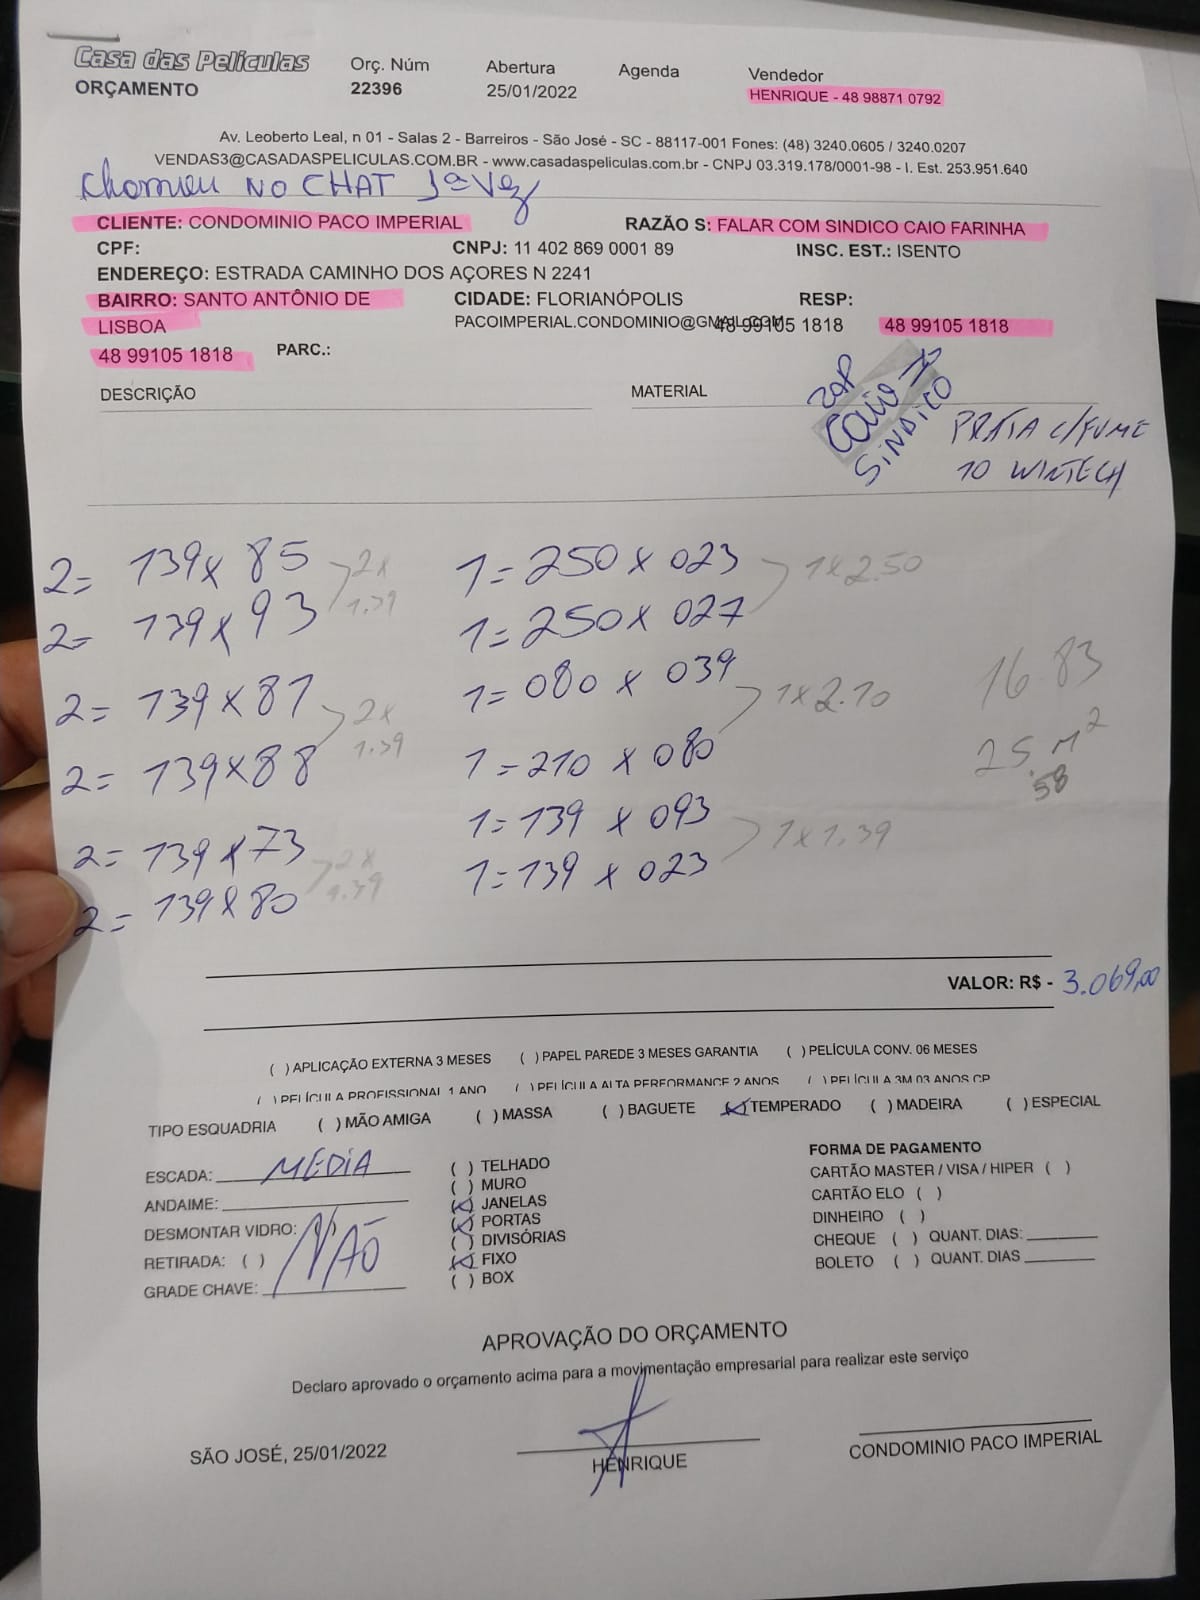 Casa das Películas
ORÇAMENTO
Orç. Núm
22396
Abertura
25/01/2022
Agenda
Vendedor
HENRIQUE - 48 98871 0792
Av. Leoberto Leal, n 01 - Salas 2 - Barreiros - São José - SC - 88117-001 Fones: (48) 3240.0605 / 3240.0207
VENDAS3@CASADASPELICULAS.COM.BR - www.casadaspeliculas.com.br - CNPJ 03.319.178/0001-98 - I. Est. 253.951.640
Chamou NO CHAT 1ª Vez
CLIENTE: CONDOMINIO PACO IMPERIAL RAZÃO S: FALAR COM SINDICO CAIO FARINHA
CPF: CNPJ: 11 402 869 0001 89 INSC. EST.: ISENTO
ENDEREÇO: ESTRADA CAMINHO DOS AÇORES N 2241
BAIRRO: SANTO ANTÔNIO DE CIDADE: FLORIANÓPOLIS RESP:
LISBOA PACOIMPERIAL.CONDOMINIO@GMAIL.COM 48 99105 1818 48 99105 1818
48 99105 1818 PARC.:
DESCRIÇÃO MATERIAL
ZAP
CAIO
SINDICO
PRATA C/FUME
10 WINTECH
2= 139x 85 2x 1=250 x 023 1x2.50
2= 139x93 1.39 1=250x 027
2= 139x81 2x 1=080 x 039 1x2.10 16.83
2= 139x88 1.39 1=210 x 080 25.58 M²
2= 139x73 2x 1=139 x 093 1x1.39
2= 139x80 1.39 1=139 x 023
VALOR: R$ - 3.069,00
( ) APLICAÇÃO EXTERNA 3 MESES ( ) PAPEL PAREDE 3 MESES GARANTIA ( ) PELÍCULA CONV. 06 MESES
( ) PELÍCULA PROFISSIONAL 1 ANO ( ) PELÍCULA ALTA PERFORMANCE 2 ANOS ( ) PELÍCULA 3M 03 ANOS CP
TIPO ESQUADRIA ( ) MÃO AMIGA ( ) MASSA ( ) BAGUETE (x) TEMPERADO ( ) MADEIRA ( ) ESPECIAL
ESCADA: MEDIA
ANDAIME:
DESMONTAR VIDRO: NÃO
RETIRADA: ( )
GRADE CHAVE:
( ) TELHADO
( ) MURO
(x) JANELAS
(x) PORTAS
( ) DIVISÓRIAS
(x) FIXO
( ) BOX
FORMA DE PAGAMENTO
CARTÃO MASTER / VISA / HIPER ( )
CARTÃO ELO ( )
DINHEIRO ( )
CHEQUE ( ) QUANT. DIAS:
BOLETO ( ) QUANT. DIAS
APROVAÇÃO DO ORÇAMENTO
Declaro aprovado o orçamento acima para a movimentação empresarial para realizar este serviço
SÃO JOSÉ, 25/01/2022
HENRIQUE
CONDOMINIO PACO IMPERIAL